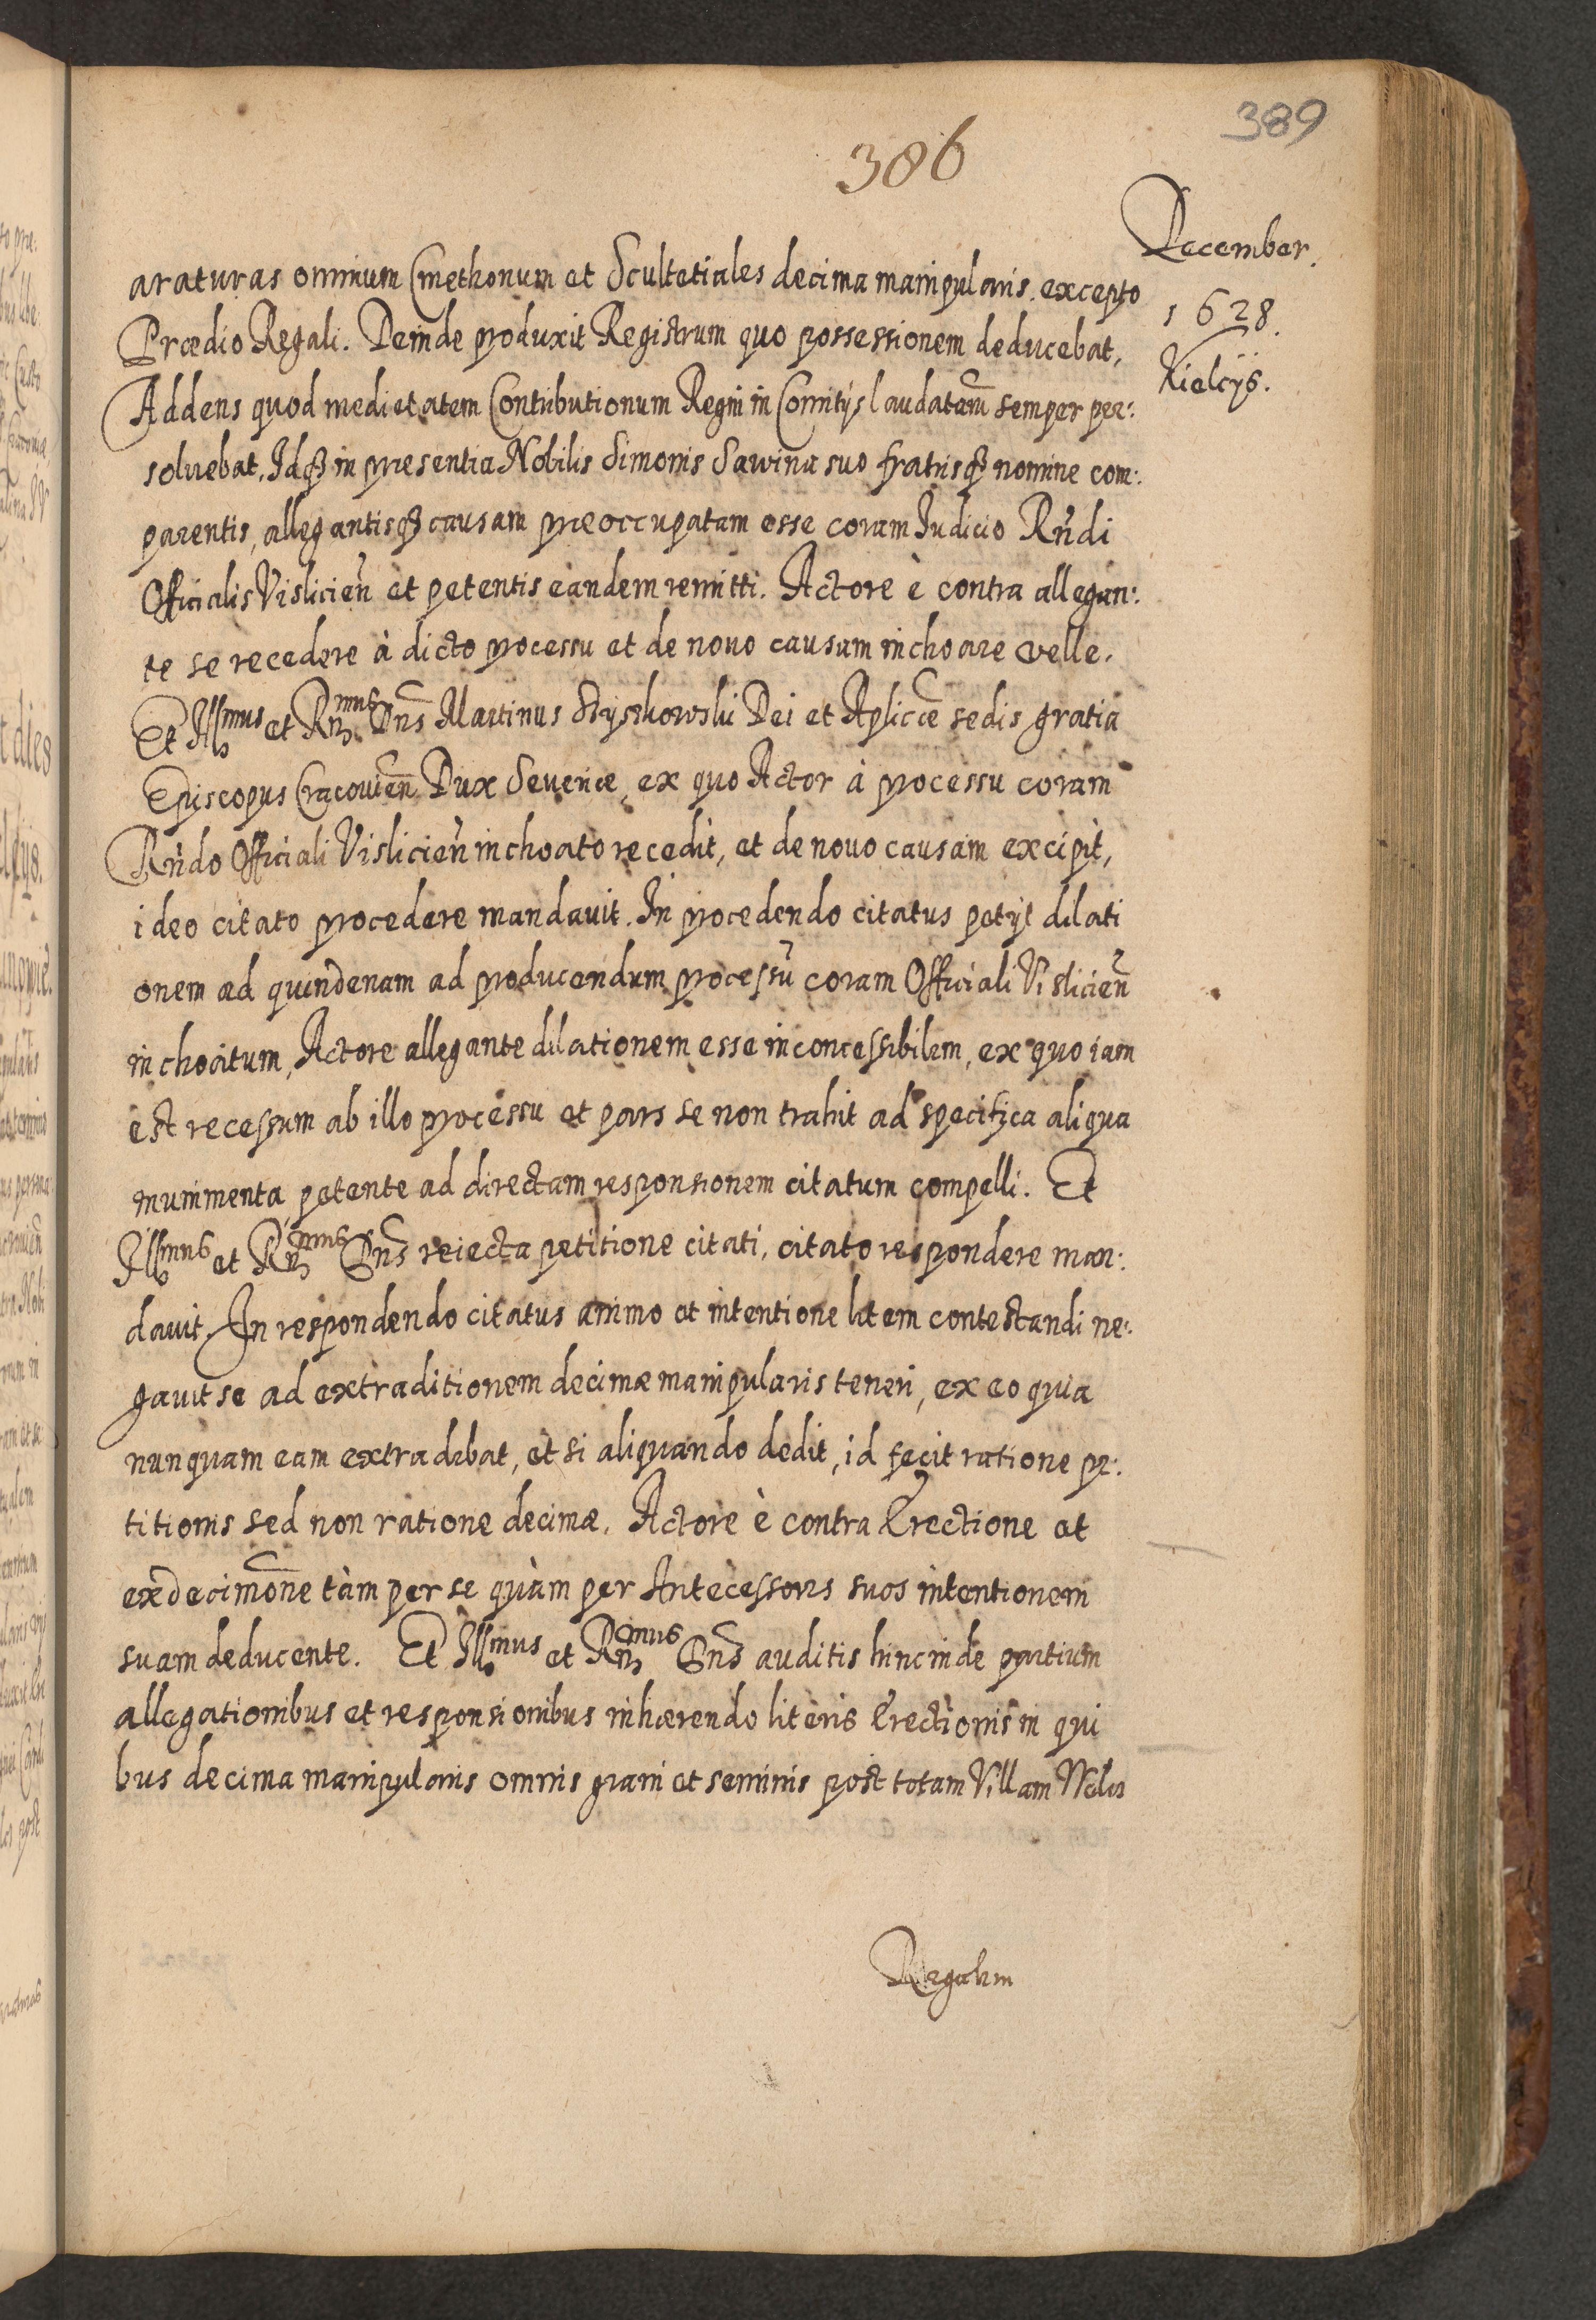 389
386
December.
1628.
Kielcÿs.
araturas omnium Cmethonum et Scultetiales decima manipularis, excepto
Prædio Regali. Deinde produxit Registrum quo possessionem deducebat,
Addens quod medietatem Contributionum Regni in Comitÿs laudatam̃ semper per:
soluebat. Idq3 in presentia Nobilis Simonis Sawina suo fratrisq3 nomine com:
parentis, allegantisq3 causam preoccupatam esse coram Iudicio Rñdi
Officialis Visliciẽn et petentis eandem remitti. Actore è contra allegan:
te se recedere à dicto processu et de nouo causam inchoare velle.
Et Illmus et Rnmus Dns Martinus Szyszkowski Dei et Aplicæ sedis gratia
Episcopus Cracouien̄ Dux Seueriæ, ex quo Actor à processu coram
Rñdo Officiali Visliciẽn inchoato recedit, et de nouo causam excipit,
ideo citato procedere mandauit. In procedendo citatus petÿt dilati
onem ad quindenam ad producendum processũ coram Officiali Visliciẽn
inchoatum, Actore allegante dilationem esse inconcessibilem, ex quo iam
est recessum ab illo processu et pars se non trahit ad specifica aliqua
munimenta petente ad directam responsionem citatum compelli. Et
Illmus et Rnmus Dns reiecta petitione citati, citato respondere man:
dauit. In respondendo citatus animo et intentione litem contestandi ne:
gauit se ad extraditionem decimæ manipularis teneri, ex eo quia
nunquam eam extradebat, et si aliquando dedit, id fecit ratione pe:
titionis sed non ratione decimæ. Actore è contra Erectione et
ex decimõne tàm per se quàm per Antecessores suos intentionem
suam deducente. Et Illmus et Rnmus Dns auditis hinc inde partium
allegationibus et responsionibus inhærendo literis Erectionis in qui
bus decima manipularis omnis grani et seminis post totam Villam Welcz
Regalem